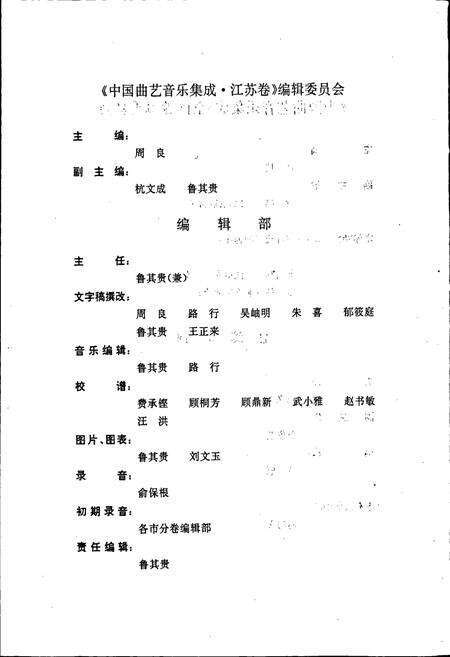 《中国曲艺音乐集成·江苏卷》编辑委员会
主 编：
周 良
副 主 编：
杭文成 鲁其贵
编 辑 部
主 任：
鲁其贵(兼)
文字稿撰改：
周 良 路 行 吴岫明 朱 喜 郁筱庭
鲁其贵 王正来
音乐编辑：
鲁其贵 路 行
校 谱：
费承铿 顾桐芳 顾鼎新 武小雅 赵书敏
汪 洪
图片、图表：
鲁其贵 刘文玉
录 音：
俞保根
初期录音：
各市分卷编辑部
责任编辑：
鲁其贵